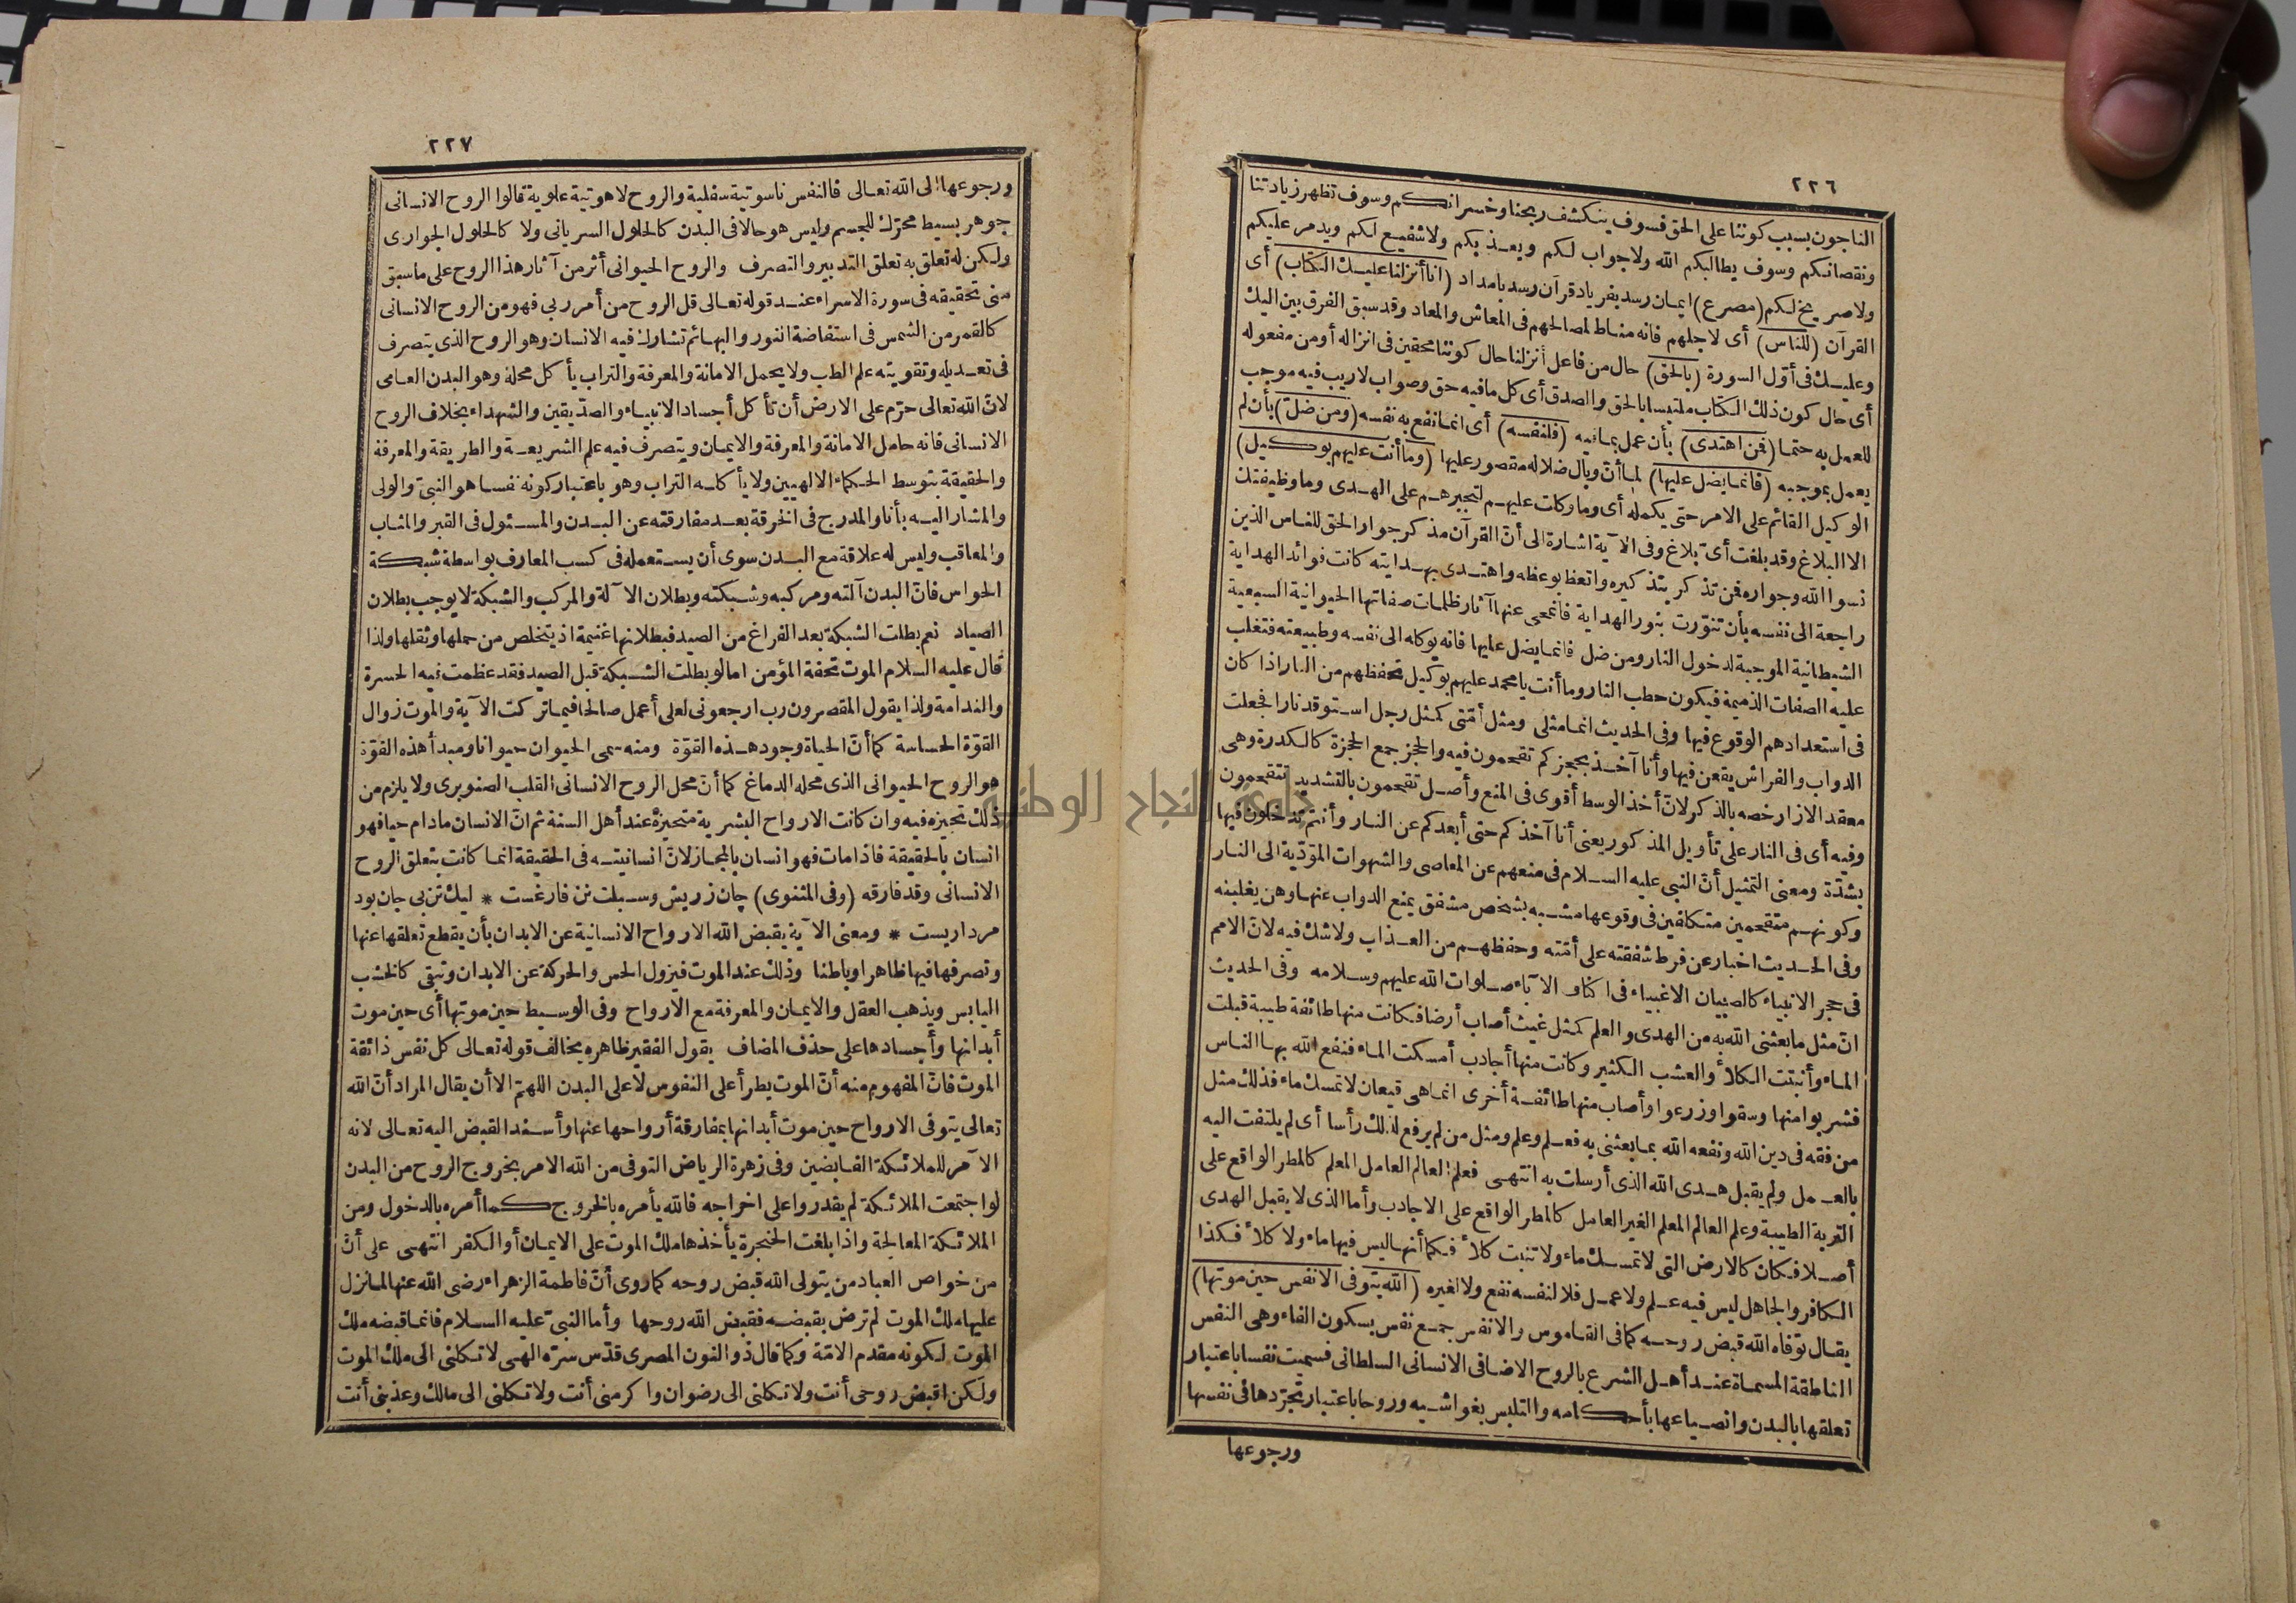 ٢٢٦
الناجون بسبب كوننا على الحق فسوف ينكشف ربحنا وخسرانكم وسوف تظهر زيادتنا
ونقصانكم وسوف يطالبكم الله ولا جواب لكم ويعذبكم ولا شفيع لكم ويدمر عليكم
ولا صريخ لكم (مصرع) ايمان رسد بفرياد قرآن رسد بامداد (انا أنزلنا عليك الكتاب) أى
القرآن (للناس) أى لاجلهم فانه مناط لمصالحهم فى المعاش والمعاد وقد سبق الفرق بين اليك
وعليك فى أوّل السورة (بالحق) حال من فاعل أنزلنا حال كوننا محقين فى انزاله أو من مفعوله
أى حال كون ذلك الكتاب ملتبسا بالحق والصدق أى كل ما فيه حق وصواب لا ريب فيه موجب
للعمل به حتما (فمن اهتدى) بأن عمل بما فيه (فلنفسه) أى انما نفع به نفسه (ومن ضلّ) بأن لم
يعمل بموجبه (فانما يضل عليها) لما أنّ وبال ضلاله مقصور عليها (وما أنت عليهم بوكيل)
الوكيل القائم على الامر حتى يكمله أى وما وكلت عليهم لتجبرهم على الهدى وما وظيفتك
الا البلاغ وقد بلغت أىّ بلاغ وفى الآية اشارة الى أنّ القرآن مذكر جوار الحق للناس الذين
نسوا الله وجواره فمن تذكر بتذكيره واتعظ بوعظه واهتدى بهدايته كانت فوائد الهداية
راجعة الى نفسه بأن تنوّرت بنور الهداية فانمحى عنها آثار ظلمات صفاتها الحيوانية السبعية
الشيطانية الموجبة لدخول النار ومن ضل فانما يضل عليها فانه يوكله الى نفسه وطبيعته فتغلب
عليه الصفات الذميمة فيكون حطب النار وما أنت يا محمد عليهم بوكيل تحفظهم من النار اذا كان
فى استعدادهم الوقوع فيها وفى الحديث انما مثلى ومثل أمّتى كمثل رجل استوقد نارا فجعلت
الدواب والفراش يقعن فيها وأنا آخذ بحجزكم تقحمون فيه والحجز جمع الحجزة كالكدرة وهى
معقد الازار خصه بالذكر لانّ أخذ الوسط أقوى فى المنع وأصل تقحمون بالتشديد تتقحمون
وفيه أى فى النار على تأويل المذكور يعنى أنا آخذكم حتى أبعدكم عن النار وأنتم تدخلون فيها
بشدّة ومعنى التمثيل أنّ النبى عليه السلام فى منعهم عن المعاصى والشهوات المؤدّية الى النار
وكونهم متقحمين متكلفين فى وقوعها مشبه بشخص مشفق يمنع الدواب عنها وهن يغلبنه
وفى الحديث اخبار عن فرط شفقته على أمّته وحفظهم من العذاب ولا شك فيه لانّ الامم
فى حجر الانبياء كالصبيان الاغبياء فى اكناف الآباء صلوات الله عليهم وسلامه وفى الحديث
انّ مثل ما بعثنى الله به من الهدى والعلم كمثل غيث أصاب أرضا فكانت منها طائفة طيبة قبلت
الماء وأنبتت الكلأ والعشب الكثير وكانت منها أجادب أمسكت الماء فنفع الله بها الناس
فشربوا منها وسقوا وزرعوا وأصاب منها طائفة أخرى انما هى قيعان لا تمسك ماء فذلك مثل
من فقه فى دين الله ونفعه الله بما بعثنى به فعلم وعلم ومثل من لم يرفع لذلك رأسا أى لم يلتفت اليه
بالعمل ولم يقبل هدى الله الذى أرسلت به انتهى فعلم العالم العامل المعلم كالمطر الواقع على
التربة الطيبة وعلم العالم المعلم الغير العامل كالمطر الواقع على الاجادب وأما الذى لا يقبل الهدى
أصلا فكان كالارض التى لا تمسك ماء ولا تنبت كلأ فكما أنها ليس فيها ماء ولا كلأ فكذا
الكافر والجاهل ليس فيه علم ولا عمل فلا لنفسه نفع ولا لغيره (الله يتوفى الانفس حين موتها)
يقال توفاه الله قبض روحه كما فى القاموس والانفس جمع نفس بسكون الفاء وهى النفس
الناطقة المسماة عند أهل الشرع بالروح الاضافى الانسانى السلطانى فسميت نفسا باعتبار
تعلقها بالبدن وانصباعها بأحكامه والتلبس بغواشيه وروحا باعتبار تجرّدها فى نفسها
ورجوعها
٢٢٧
ورجوعها الى الله تعالى فالنفس ناسوتية سفلية والروح لاهوتية علوية قالوا الروح الانسانى
جوهر بسيط محرّك للجسم وليس هو حالا فى البدن كالحلول السريانى ولا كالحلول الجوارى
ولكن له تعلق به تعلق التدبير والتصرف والروح الحيوانى أثر من آثار هذا الروح على ما سبق
منى تحقيقه فى سورة الاسراء عند قوله تعالى قل الروح من أمر ربى فهو من الروح الانسانى
كالقمر من الشمس فى استفاضة النور والبهائم تشارك فيه الانسان وهو الروح الذى يتصرف
فى تعديله وتقويته علم الطب ولا يحمل الامانة والمعرفة والتراب يأكل محله وهو البدن العامى
لانّ الله تعالى حرّم على الارض أن تأكل أجساد الانبياء والصدّيقين والشهداء بخلاف الروح
الانسانى فانه حامل الامانة والمعرفة والايمان ويتصرف فيه علم الشريعة والطريقة والمعرفة
والحقيقة بتوسط الحكماء الالهيين ولا يأكله التراب وهو باعتبار كونه نفسا هو النبىّ والولى
والمشار اليه بأنا والمدرج فى الخرقة بعد مفارقته عن البدن والمسئول فى القبر والمثاب
والمعاقب وليس له علاقة مع البدن سوى أن يستعمله فى كسب المعارف بواسطة شبكة
الحواس فانّ البدن آلته ومركبه وشبكته وبطلان الآلة والمركب والشبكة لا يوجب بطلان
الصياد نعم بطلت الشبكة بعد الفراغ من الصيد فبطلانها غنيمة اذ يتخلص من حملها وثقلها ولذا
قال عليه السلام الموت تحفة المؤمن اما لو بطلت الشبكة قبل الصيد فقد عظمت فيه الحسرة
والندامة ولذا يقول المقصرون رب ارجعونى لعلى أعمل صالحا فيما تركت الآية والموت زوال
القوّة الحساسة كما أنّ الحياة وجود هذه القوّة ومنه سمى الحيوان حيوانا ومبدأ هذه القوّة
هو الروح الحيوانى الذى محله الدماغ كما أنّ محل الروح الانسانى القلب الصنوبرى ولا يلزم من
ذلك تحيزه فيه وان كانت الارواح البشرية متحيزة عند أهل السنة ثم انّ الانسان ما دام حيا فهو
انسان بالحقيقة فاذا مات فهو انسان بالمجاز لانّ انسانيته فى الحقيقة انما كانت بتعلق الروح
الانسانى وقد فارقه (وفى المثنوى) جان زريش وسبلت تن فارغست * ليك تن بى جان بود
مردار پست * ومعنى الآية يقبض الله الارواح الانسانية عن الابدان بأن يقطع تعلقها عنها
وتصرفها فيها ظاهرا وباطنا وذلك عند الموت فيزول الحس والحركة عن الابدان وتبقى كالخشب
اليابس ويذهب العقل والايمان والمعرفة مع الارواح وفى الوسيط حين موتها أى حين موت
أبدانها وأجسادها على حذف المضاف يقول الفقير ظاهره يخالف قوله تعالى كل نفس ذائقة
الموت فانّ المفهوم منه أنّ الموت يطرأ على النفوس لا على البدن اللهمّ الا أن يقال المراد أنّ الله
تعالى يتوفى الارواح حين موت أبدانها بمفارقة أرواحها عنها وأسند القبض اليه تعالى لانه
الآمر للملائكة القابضين وفى زهرة الرياض التوفى من الله الامر بخروج الروح من البدن
لو اجتمعت الملائكة لم يقدروا على اخراجه فالله يأمره بالخروج كما أمره بالدخول ومن
الملائكة المعالجة واذا بلغت الحنجرة يأخذها ملك الموت على الايمان أو الكفر انتهى على أنّ
من خواص العباد من يتولى الله قبض روحه كما روى أنّ فاطمة الزهراء رضى الله عنها لما نزل
عليها ملك الموت لم ترض بقبضه فقبض الله روحها وأما النبىّ عليه السلام فانما قبضه ملك
الموت لكونه مقدم الامّة وكما قال ذو النون المصرى قدّس سرّه الهى لا تكلنى الى ملك الموت
ولكن اقبض روحى أنت ولا تكلنى الى رضوان واكرمنى أنت ولا تكلنى الى مالك وعذبنى أنت
جامعة النجاح الوطنية